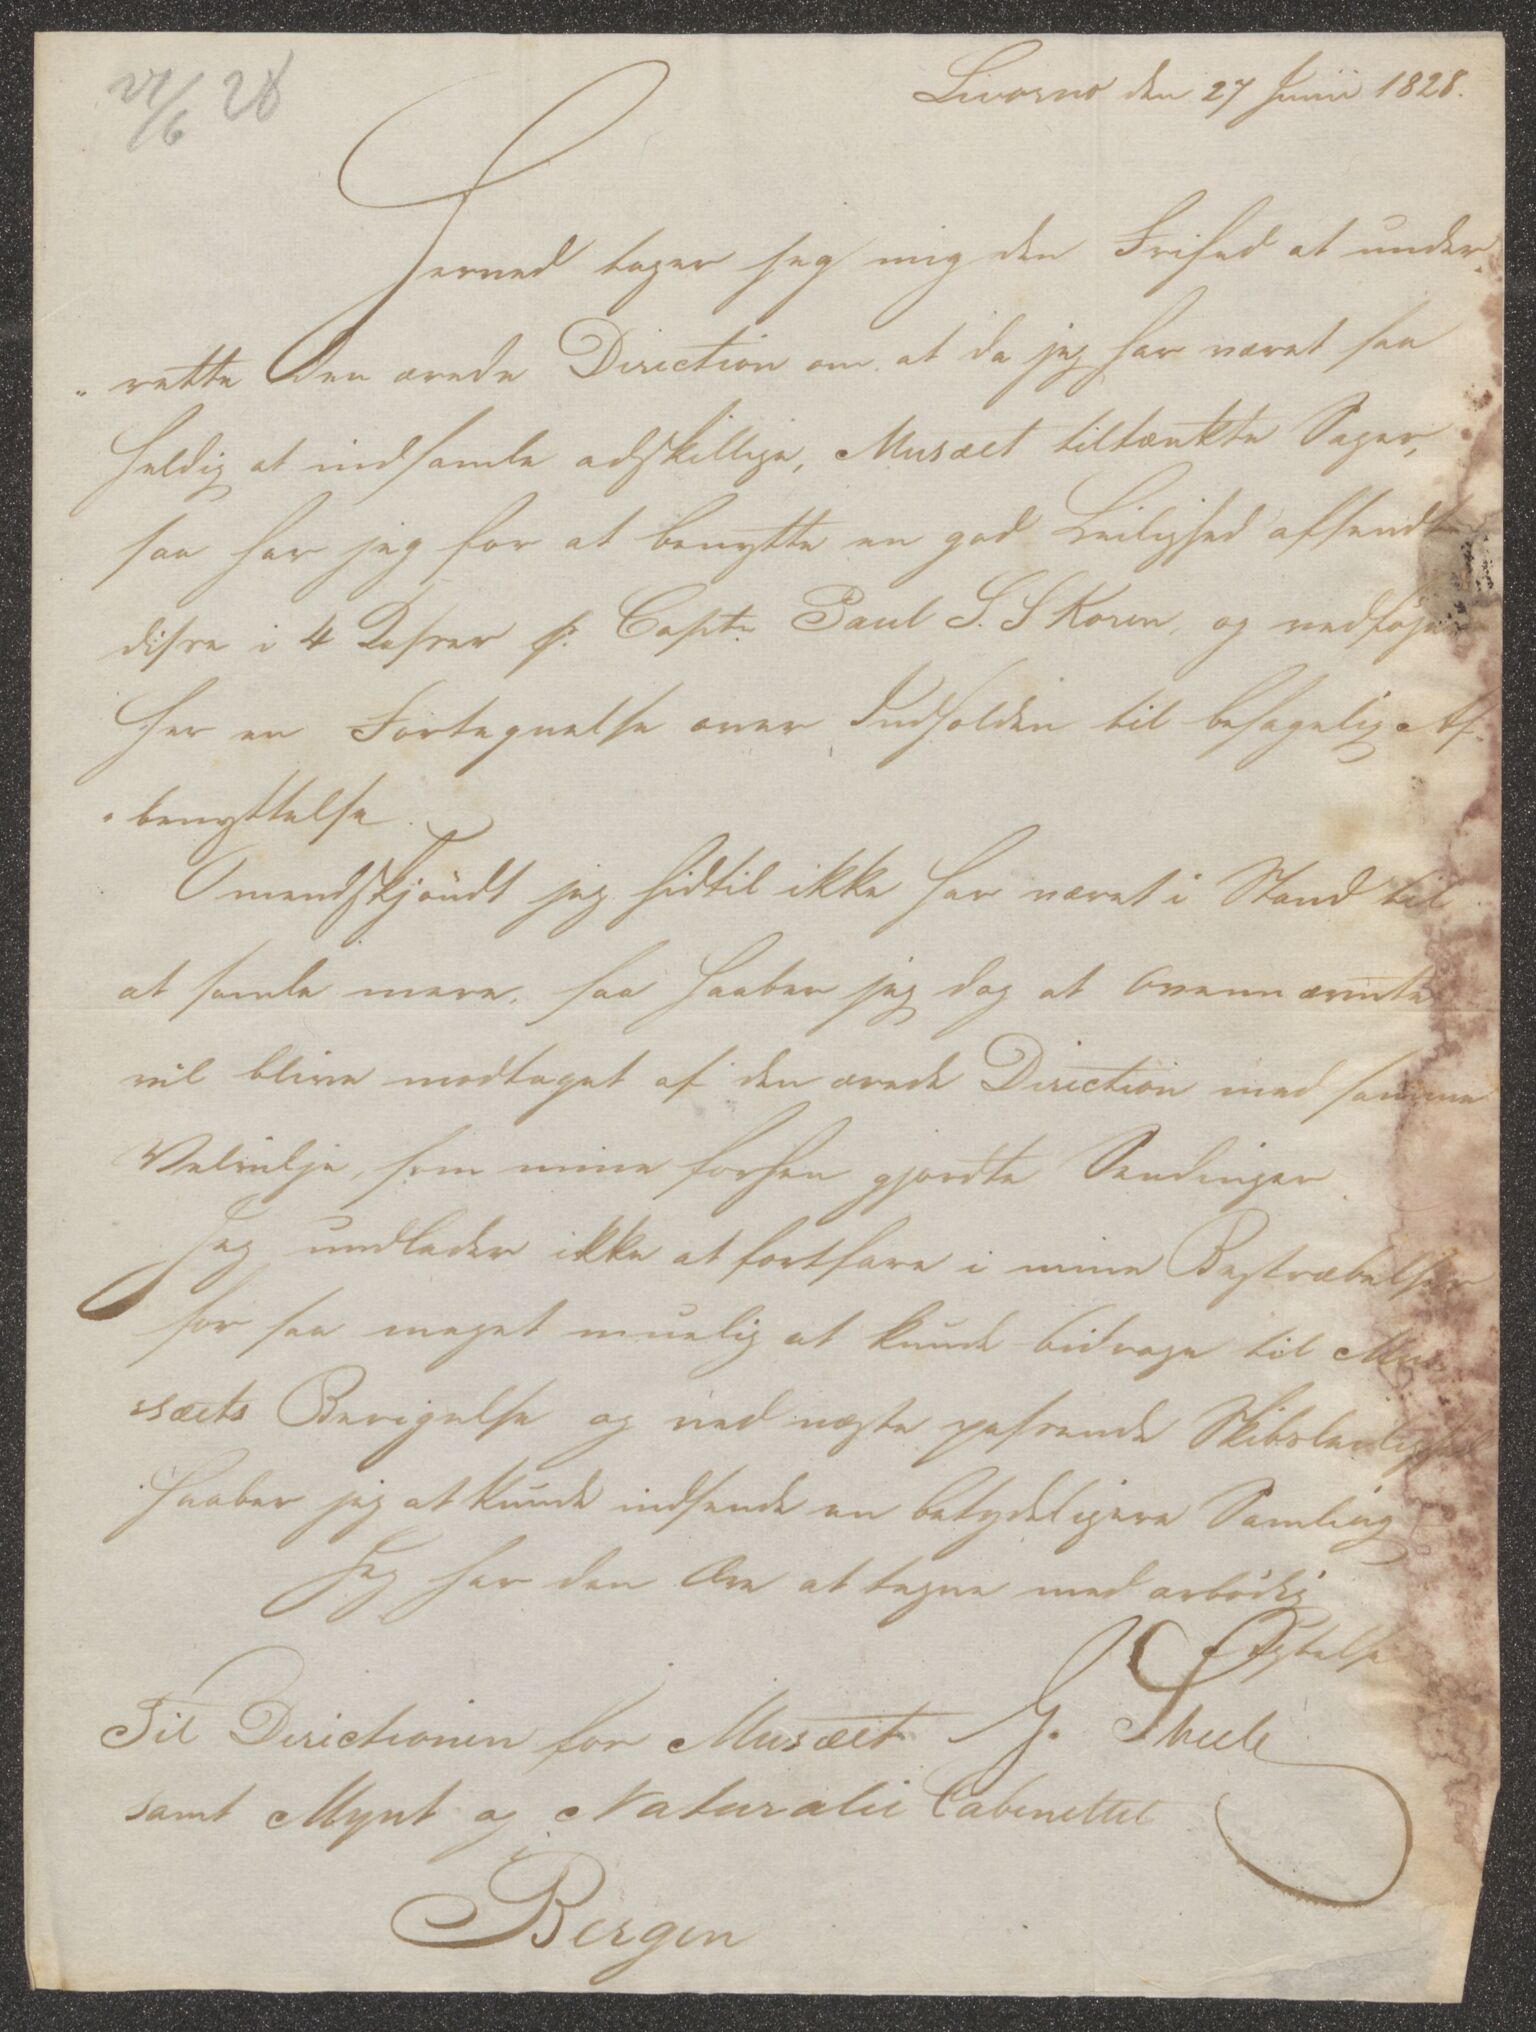 27/6 28
Livorno den 27 Junii 1828.
Herved tager jeg mig den Frihed at under-
-rette den ærede Direction om at da jeg har været saa
heldig at indsamle adskillige, Musæet tiltænkte Sager,
saa har jeg for at benytte en god Leilighed afsendt
disse i 4 Kasser pr. Captn Paul S. S Koren, og vedføjer
her en Fortegnelse over Indholden til behagelig Af-
-benyttelse.
Omendskjöndt jeg hidtil ikke har været i Stand til
at samle mere, saa haaber jeg dog at ovennævnte
vil blive modtaget af den ærede Direction med samme
Velvilje, som mine forhen gjordte Sendinger.
Jeg undlader ikke at fortfare i mine Bestræbelser
for saa meget muelig at kunde bidrage til Mu-
-sæets Berigelse og ved nogte passende Skibsleilighed
haaber jeg at kunde indsende en betydeligere Samling
Jeg har den Ære at tegne med ærbödig
Agtelse
Til Directionen for Musæet G. Thule
samt Mynt og Naturalie Cabinettet
Bergen